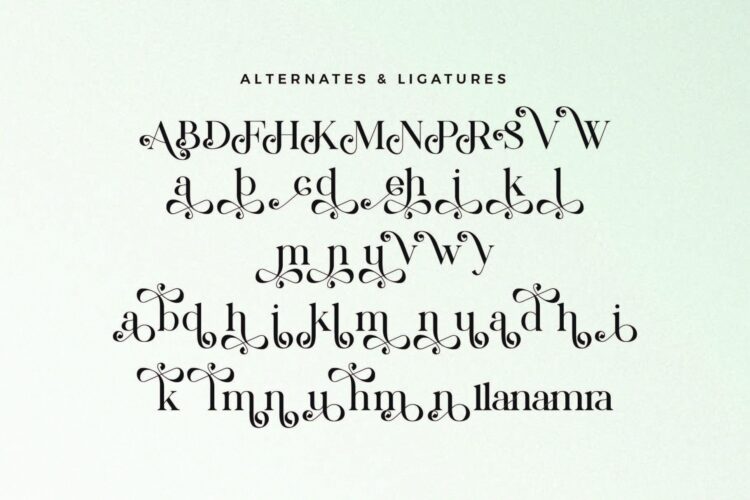 ALTERNATES & LIGATURES
ABDFHKMNPRSVW
abcdehikl
mnuvwy
abdhiklmnuadhi
klmnuhmnllanamra